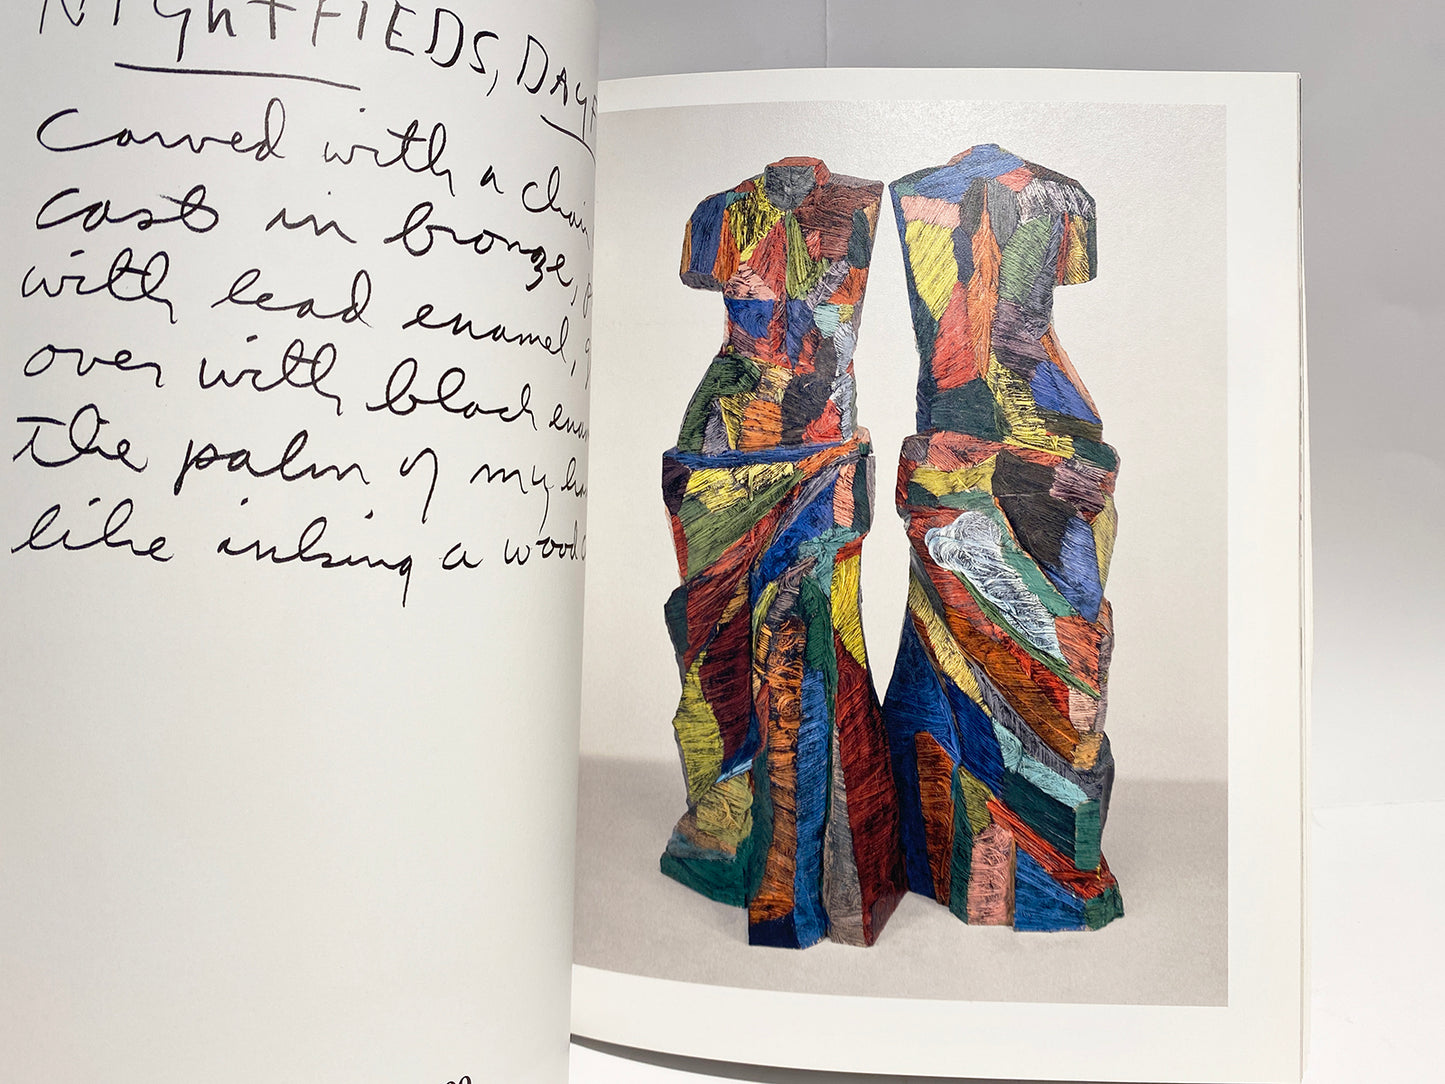 NightFIEDS, DAYF
Carved with a chain
cast in bronze,
with lead enamel,
over with black enam
the palm of my han
like inking a wood